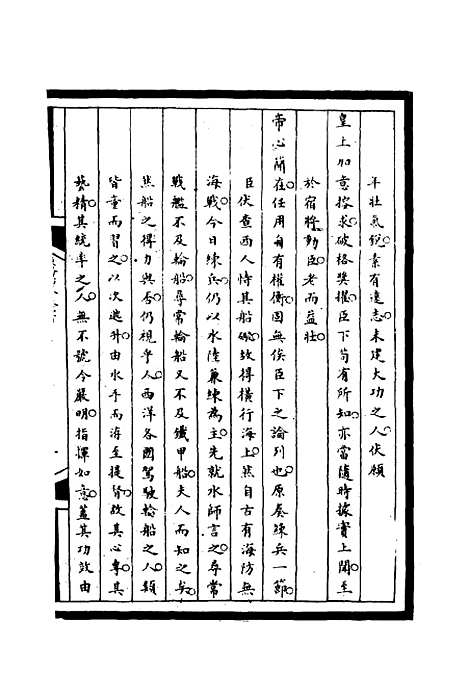 年壯氣銳素有遠志未建大功之人伏願
皇上加意搜求破格獎擢臣下苟有所知亦當隨時據實上聞至
於宿將勳臣老而益壯
帝心簡在任用自有權衡固無俟臣下之論列也原奏練兵一節
臣伏查西人恃其船礮致得橫行海上然自古有海防無
海戰今日練兵仍以水陸兼練為主先就水師言之尋常
戰艦不及輪船尋常輪船又不及鐵甲船夫人而知之矣
然船之得力與否仍視乎人西洋各國駕駛輪船之人類
皆童而習之以次遞升由水手而洊至提督故其心專其
藝精其統率之人無不號令嚴明指揮如意蓋其功效由